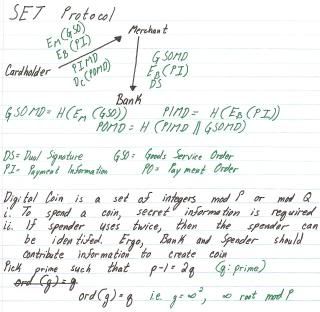 SET Protocol
Merchant
E_M(GSO)
E_B(PI)
PIMD
D_C(POMD)
Cardholder
GSOMD
E_B(PI)
DS
Bank
GSOMD = H(E_M(GSO)) PIMD = H(E_B(PI))
POMD = H(PIMD || GSOMD)
DS = Dual Signature GSO = Goods Service Order
PI = Payment Information PO = Payment Order
Digital Coin is a set of integers mod P or mod Q
i. To spend a coin, secret information is required
ii. If spender uses twice, then the spender can
be identifed. Ergo, Bank and Spender should
contribute information to create coin
Pick prime such that p-1=2q (q: prime)
ord(g)=q
ord(g)=q i.e. g=∝², ∝ root mod P